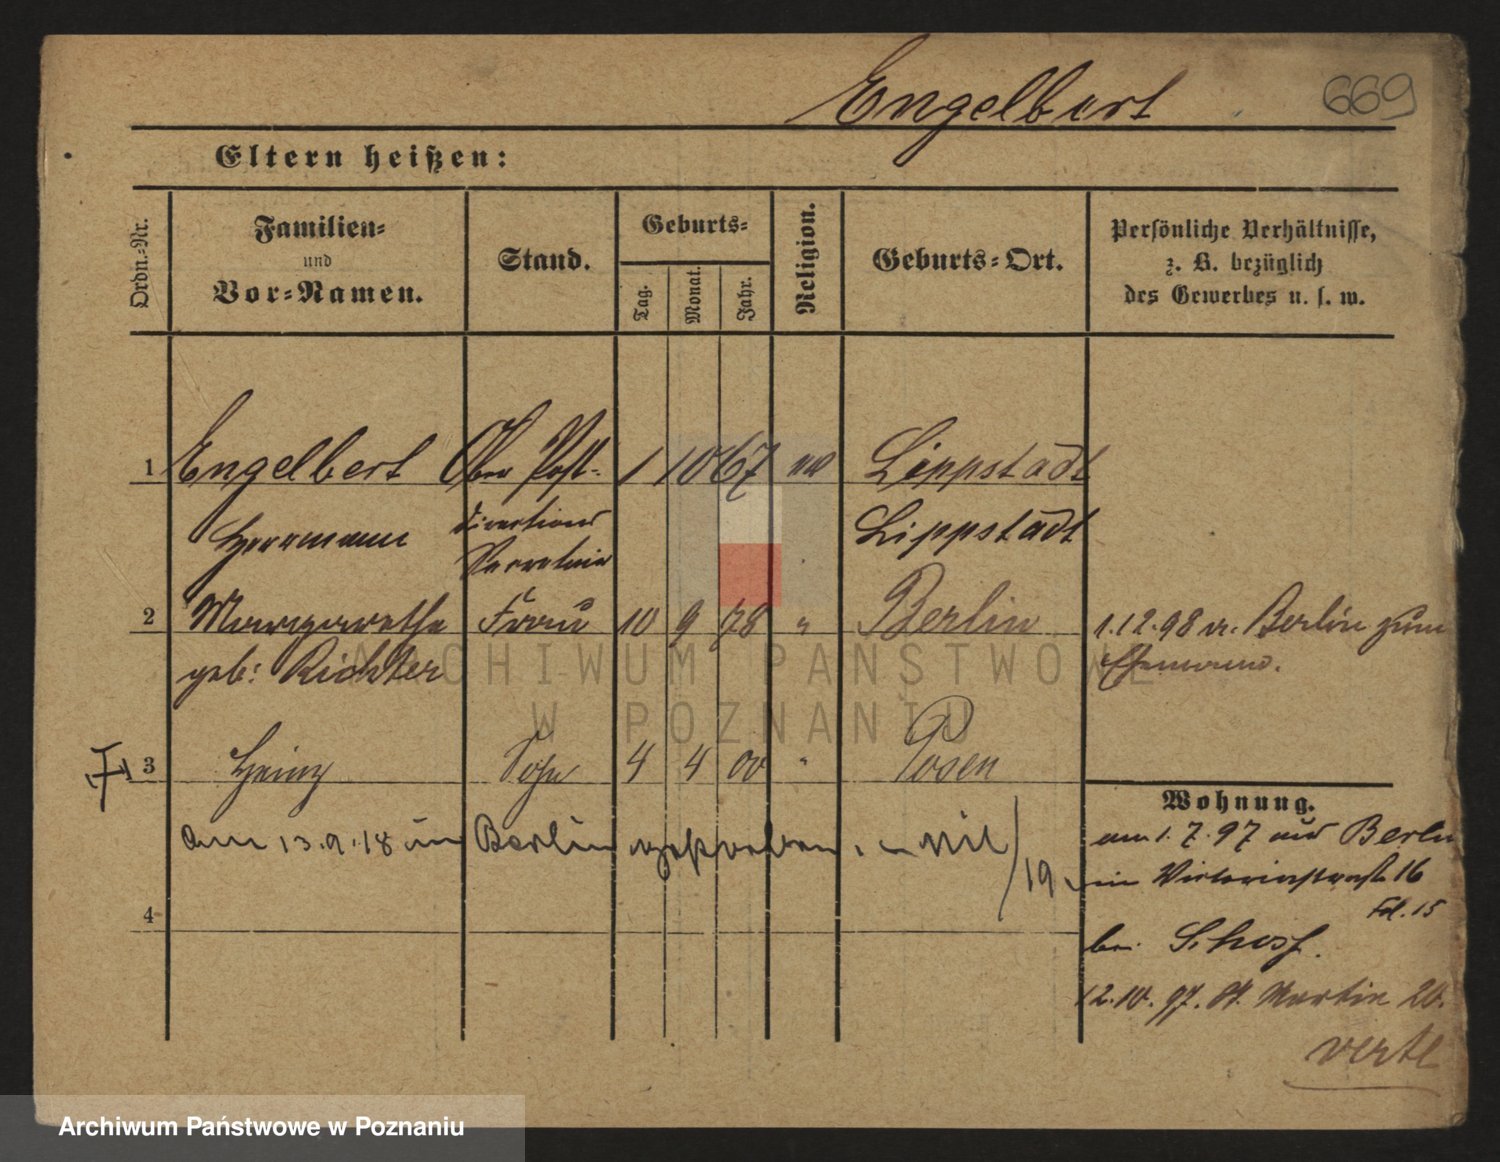 Engelbert
669
Eltern heißen:
Ordn.-Nr.
Familien-
und
Vor-Namen.
Stand.
Geburts-
Tag.
Monat.
Jahr.
Religion.
Geburts-Ort.
Persönliche Verhältnisse,
z. B. bezüglich
des Gewerbes u. s. w.
1 Engelbert Ober Post- 1 10 67 Lippstadt
Herrmann Directions Lippstadt
Secretair
2 Margarethe Frau 10 9 78 " Berlin 1.12.98 v. Berlin zum
geb: Richter Ehemann.
3 Heinz Sohn 4 4 00 " Posen
am 13.9.18 in Berlin gestorben.
19
4
Wohnung.
am 1.7.97 aus Berlin
Victoriastraße 16
Fol. 15
bei
12.10.97. St. Martin 20.
verte
ARCHIWUM PAŃSTWOWE
W POZNANIU
Archiwum Państwowe w Poznaniu